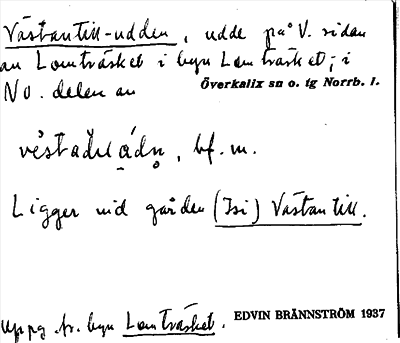 Västantill-udden, udde på V. sidan
av Lomträsket i byn Lomträsket; i
NO. delen av Överkalix sn o. tg Norrb. l.
bf. m.
Ligger vid gården (Isi) Västantill.
Uppg. fr. byn Lomträsket. EDVIN BRÄNNSTRÖM 1937